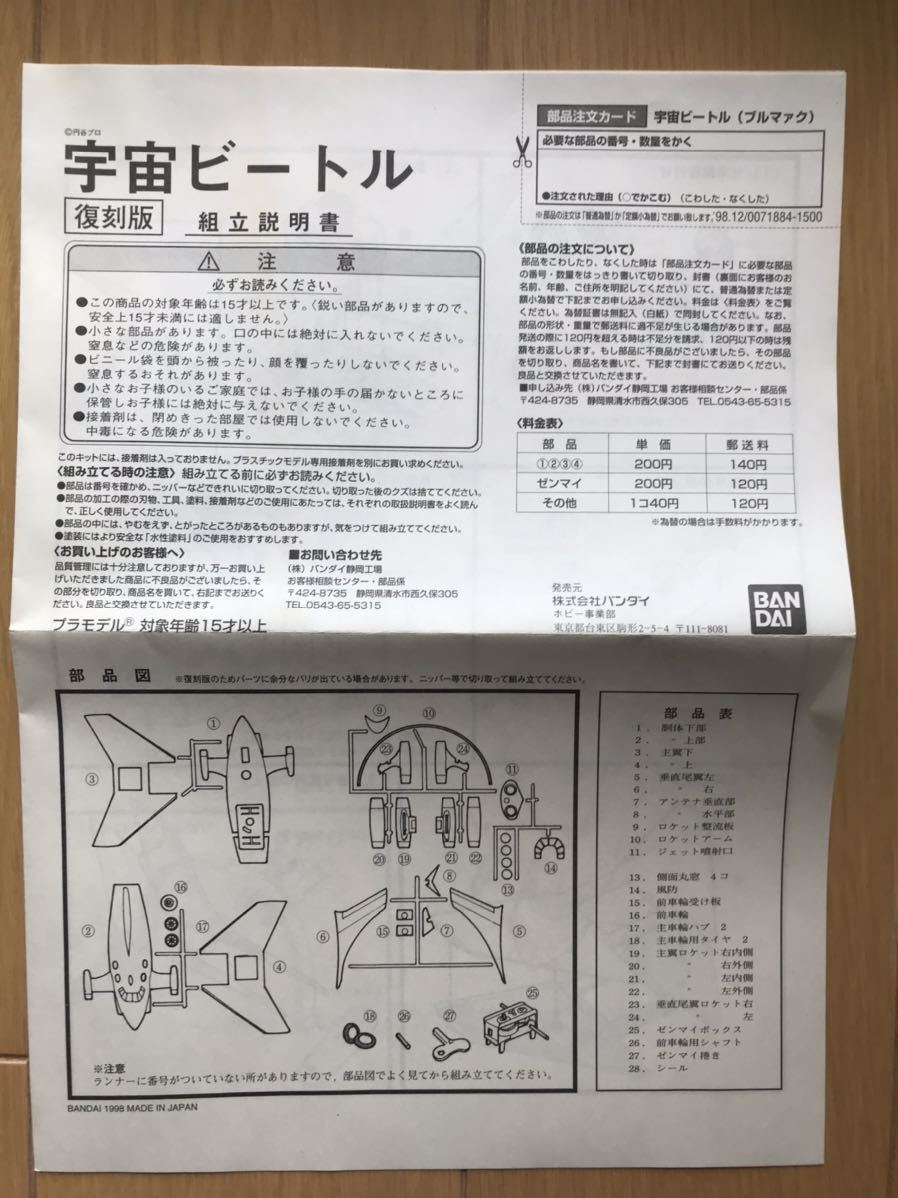 ©円谷プロ
宇宙ビートル
復刻版 組立説明書
⚠ 注意
必ずお読みください。
●この商品の対象年齢は15才以上です。〈鋭い部品がありますので、
安全上15才未満には適しません。〉
●小さな部品があります。口の中には絶対に入れないでください。
窒息などの危険があります。
●ビニール袋を頭から被ったり、顔を覆ったりしないでください。
窒息するおそれがあります。
●小さなお子様のいるご家庭では、お子様の手の届かないところに
保管しお子様には絶対に与えないでください。
●接着剤は、閉めきった部屋では使用しないでください。
中毒になる危険があります。
このキットには、接着剤は入っておりません。プラスチックモデル専用接着剤を別にお買い求めください。
〈組み立てる時の注意〉組み立てる前に必ずお読みください。
●部品は番号を確かめ、ニッパーなどできれいに切り取ってください。切り取った後のクズは捨ててください。
●部品の加工の際の刃物、工具、塗料、接着剤などのご使用にあたっては、それぞれの取扱説明書をよく読んで、
正しく使用してください。
●部品の中には、やむをえず、とがったところがあるものもありますが、気をつけて組み立ててください。
●塗装にはより安全な「水性塗料」のご使用をおすすめします。
〈お買い上げのお客様へ〉
品質管理には十分注意しておりますが、万一お買い上
げいただきました商品に不良品がございましたら、そ
の部分を切り取り、商品名を買いて、右記までお送りく
ださい。良品と交換させていただきます。
■お問い合わせ先
（株）バンダイ静岡工場
お客様相談センター・部品係
〒424-8735 静岡県清水市西久保305
TEL.0543-65-5315
プラモデル® 対象年齢15才以上
部品注文カード 宇宙ビートル（ブルマァク）
必要な部品の番号・数量をかく
●注文された理由（○でかこむ）（こわした・なくした）
※部品の注文は「普通為替」か「定額小為替」でお願い致します。'98.12/0071884-1500
〈部品の注文について〉
部品をこわしたり、なくした時は「部品注文カード」に必要な部品
の番号・数量をはっきり書いて切り取り、封書（裏面にお客様のお
名前、年齢、ご住所を明記してください）にて、普通為替または定
額小為替で下記までお申し込みください。料金は〈料金表〉をご覧
ください。為替証書は無記入（白紙）で同封してください。なお、
部品の形状・重量で郵送料に過不足が生じる場合があります。部品
発送の際に120円を超える時は不足分を請求、120円以下の時は残
額をお返しします。もし部品に不良品がございましたら、その部品
を切り取り、商品名を書いて、下記まで封書にてお送りください。
良品と交換させていただきます。
■申し込み先（株）バンダイ静岡工場 お客様相談センター・部品係
〒424-8735 静岡県清水市西久保305 TEL.0543-65-5315
〈料金表〉
部品 単価 郵送料
①②③④ 200円 140円
ゼンマイ 200円 120円
その他 1コ40円 120円
※為替の場合は手数料がかかります。
発売元
株式会社バンダイ
ホビー事業部
東京都台東区駒形2-5-4 〒111-8081
BAN
DAI
部品図 ※復刻版のためパーツに余分なバリが出ている場合があります。ニッパー等で切り取って組み立ててください。
① ⑨ ⑩
③ ㉓ ㉔ ⑪
HOSH
⑳ ⑲ ㉑ ㉒ ⑬ ⑭
⑯ ⑧
② ⑰ ④ ⑥ ⑮ ⑦ ⑤
⑱ ㉖ ㉗ ㉕
※注意
ランナーに番号がついていない所がありますので，部品図でよく見てから組み立ててください。
BANDAI 1998 MADE IN JAPAN
部品表
1．胴体下部
2．〃 上部
3．主翼下
4．〃 上
5．垂直尾翼左
6．〃 右
7．アンテナ垂直部
8．〃 水平部
9．ロケット整流板
10．ロケットアーム
11．ジェット噴射口
13．側面丸窓 4コ
14．風防
15．前車輪受け板
16．前車輪
17．主車輪ハブ 2
18．主車輪用タイヤ 2
19．主翼ロケット右内側
20．〃 右外側
21．〃 左内側
22．〃 左外側
23．垂直尾翼ロケット右
24．〃 左
25．ゼンマイボックス
26．前車輪用シャフト
27．ゼンマイ捲き
28．シール